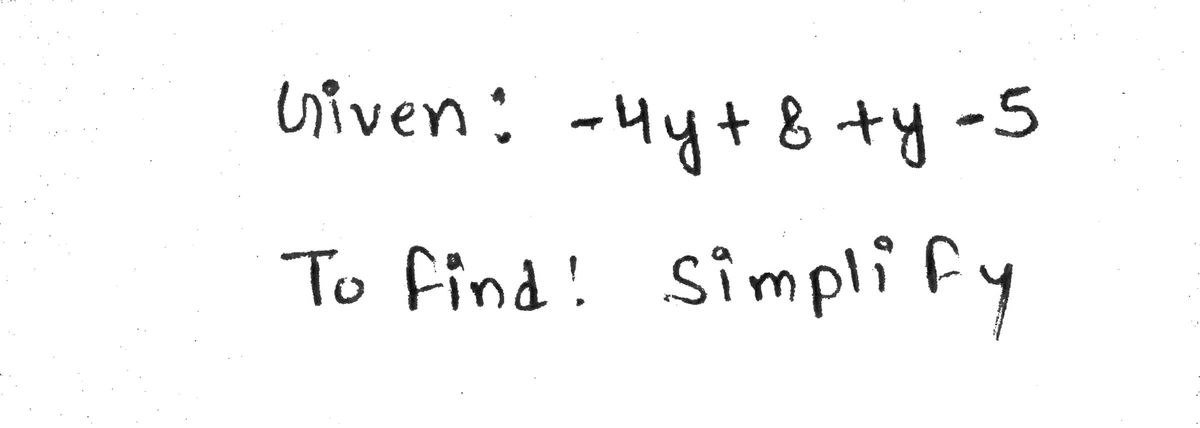 Given: -4y+8+y-5
To find! Simplify